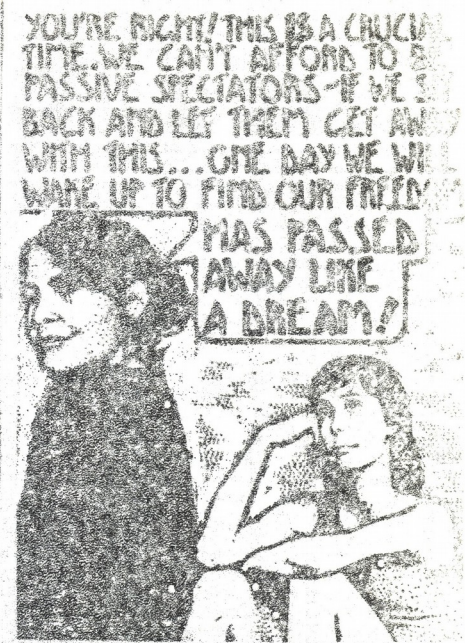 YOU'RE RIGHT! THIS IS A CRUCIA
TIME. WE CAN'T AFFORD TO B
PASSIVE SPECTATORS - IF WE S
BACK AND LET THEM GET AW
WITH THIS... ONE DAY WE WI
WAKE UP TO FIND OUR FREED
HAS PASSED
AWAY LIKE
A DREAM!